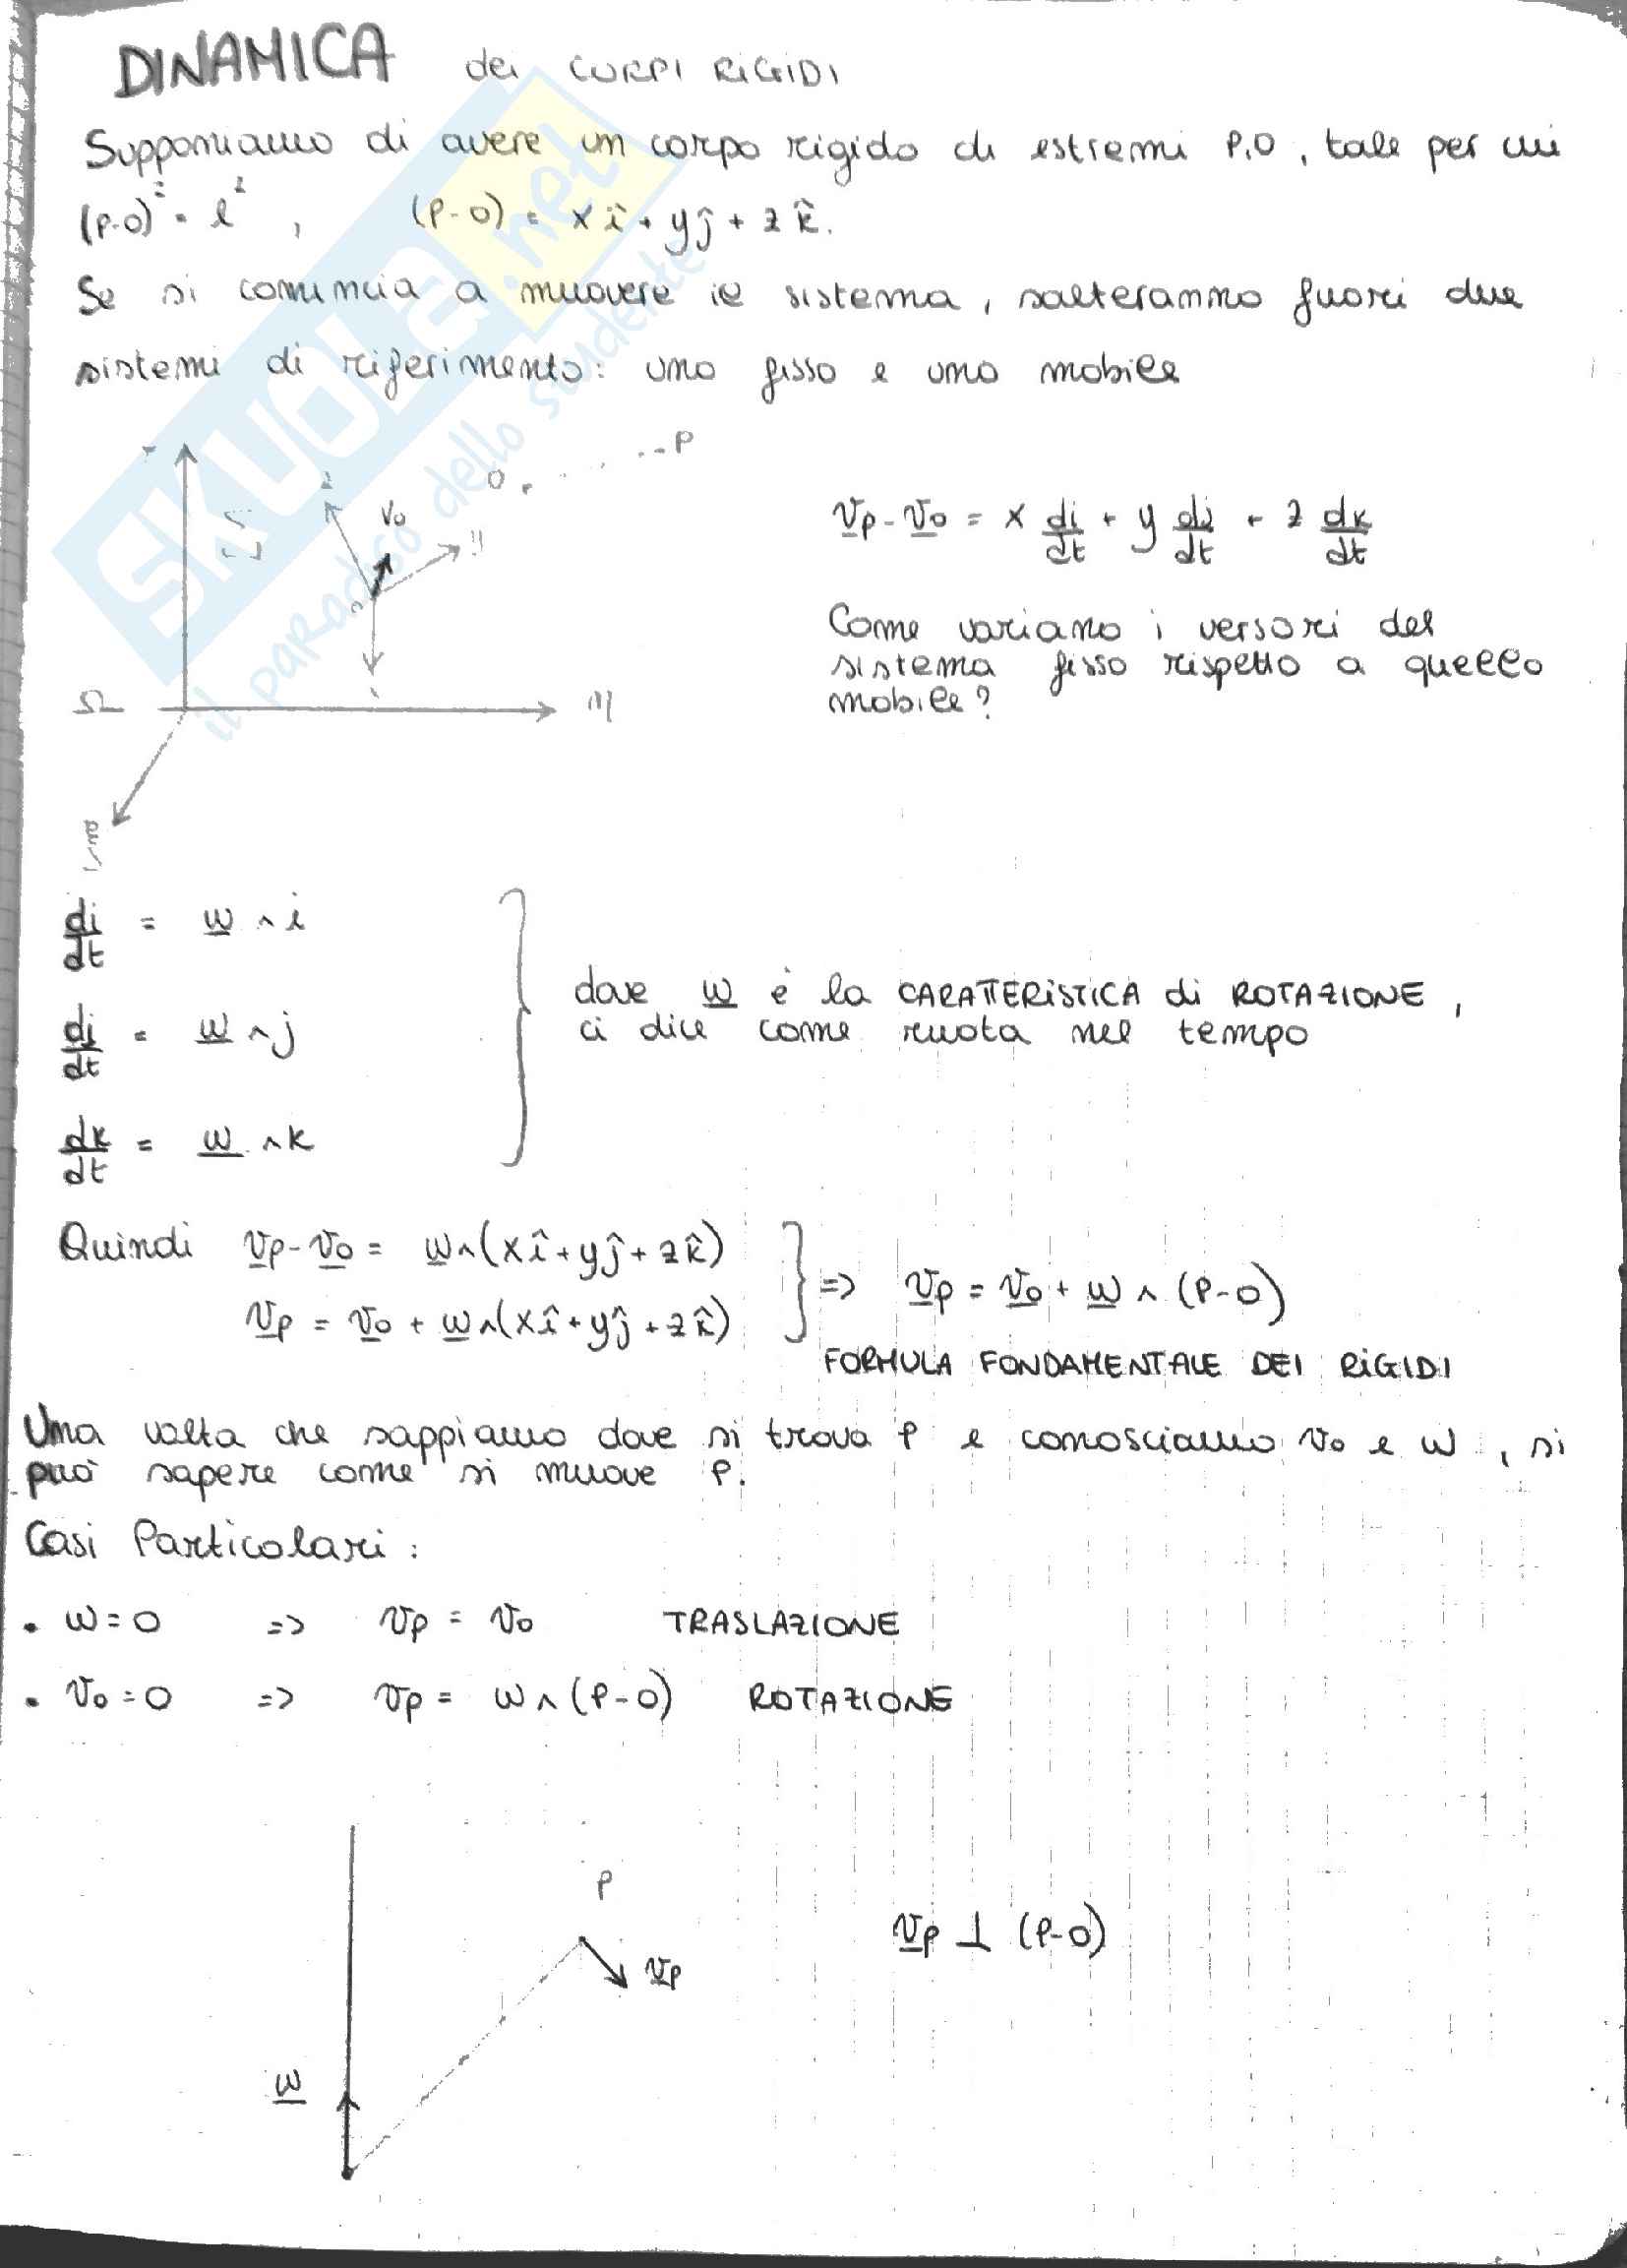 DINAMICA dei CORPI RIGIDI
Supponiamo di avere un corpo rigido di estremi P,O, tale per cui
(P-O)² = l² , (P-O) = x î + y ĵ + z k̂.
Se si comincia a muovere il sistema, salteranno fuori due
sistemi di riferimento: uno fisso e uno mobile
SKUOLA.net
il paradiso dello studente
O P
z V₀ y
O
x
Ω η
ξ
v̲p - v̲o = x di/dt + y dj/dt + z dk/dt
Come variano i versori del
sistema fisso rispetto a quello
mobile?
di/dt = ω̲ ∧ i
dj/dt = ω̲ ∧ j
dk/dt = ω̲ ∧ k
dove ω̲ è la CARATTERISTICA di ROTAZIONE,
ci dice come ruota nel tempo
Quindi v̲p - v̲o = ω̲ ∧ (x î + y ĵ + z k̂)
v̲p = v̲o + ω̲ ∧ (x î + y ĵ + z k̂)
=> v̲p = v̲o + ω̲ ∧ (P-O)
FORMULA FONDAMENTALE DEI RIGIDI
Una volta che sappiamo dove si trova P e conosciamo vo e ω, si
può sapere come si muove P.
Casi Particolari:
• ω = 0 => vp = vo TRASLAZIONE
• vo = 0 => vp = ω ∧ (P-O) ROTAZIONE
P
v̲p
v̲p ⊥ (P-O)
ω̲